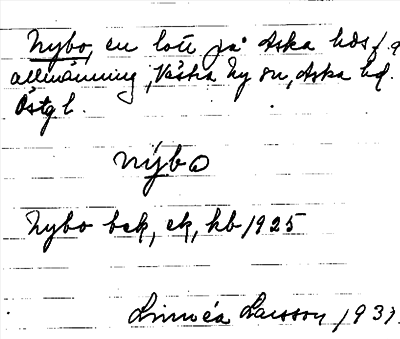 Nybo, en lott på Aska hds f. d.
allmänning, Västra Ny sn, Aska hd.
Östg l.
nýbo
Nybo bek, ek, hb 1925
Linnéa Larsson 1931.